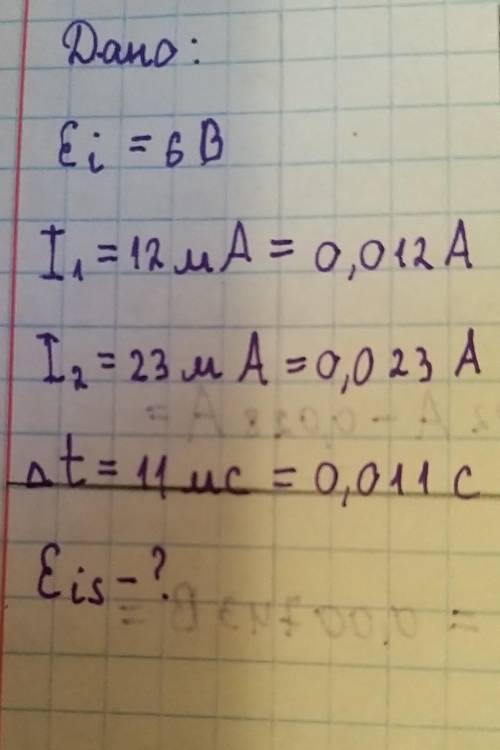 Дано:
Ei = 6 В
I₁ = 12 мА = 0,012 А
I₂ = 23 мА = 0,023 А
Δt = 11 мс = 0,011 с
Eis - ?